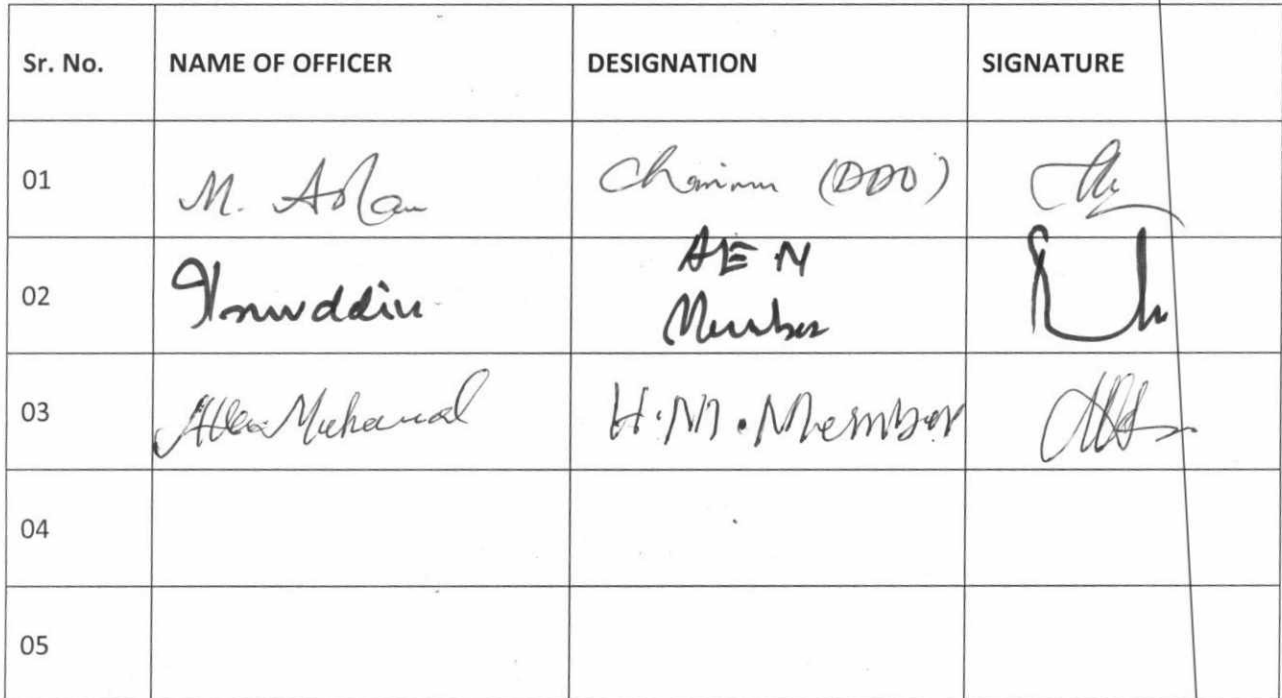 Sr. No. NAME OF OFFICER DESIGNATION SIGNATURE
01 M. Aslam Chairman (DDO)
AEN
02 Member
03 Muhamad H.M. Member
04
05